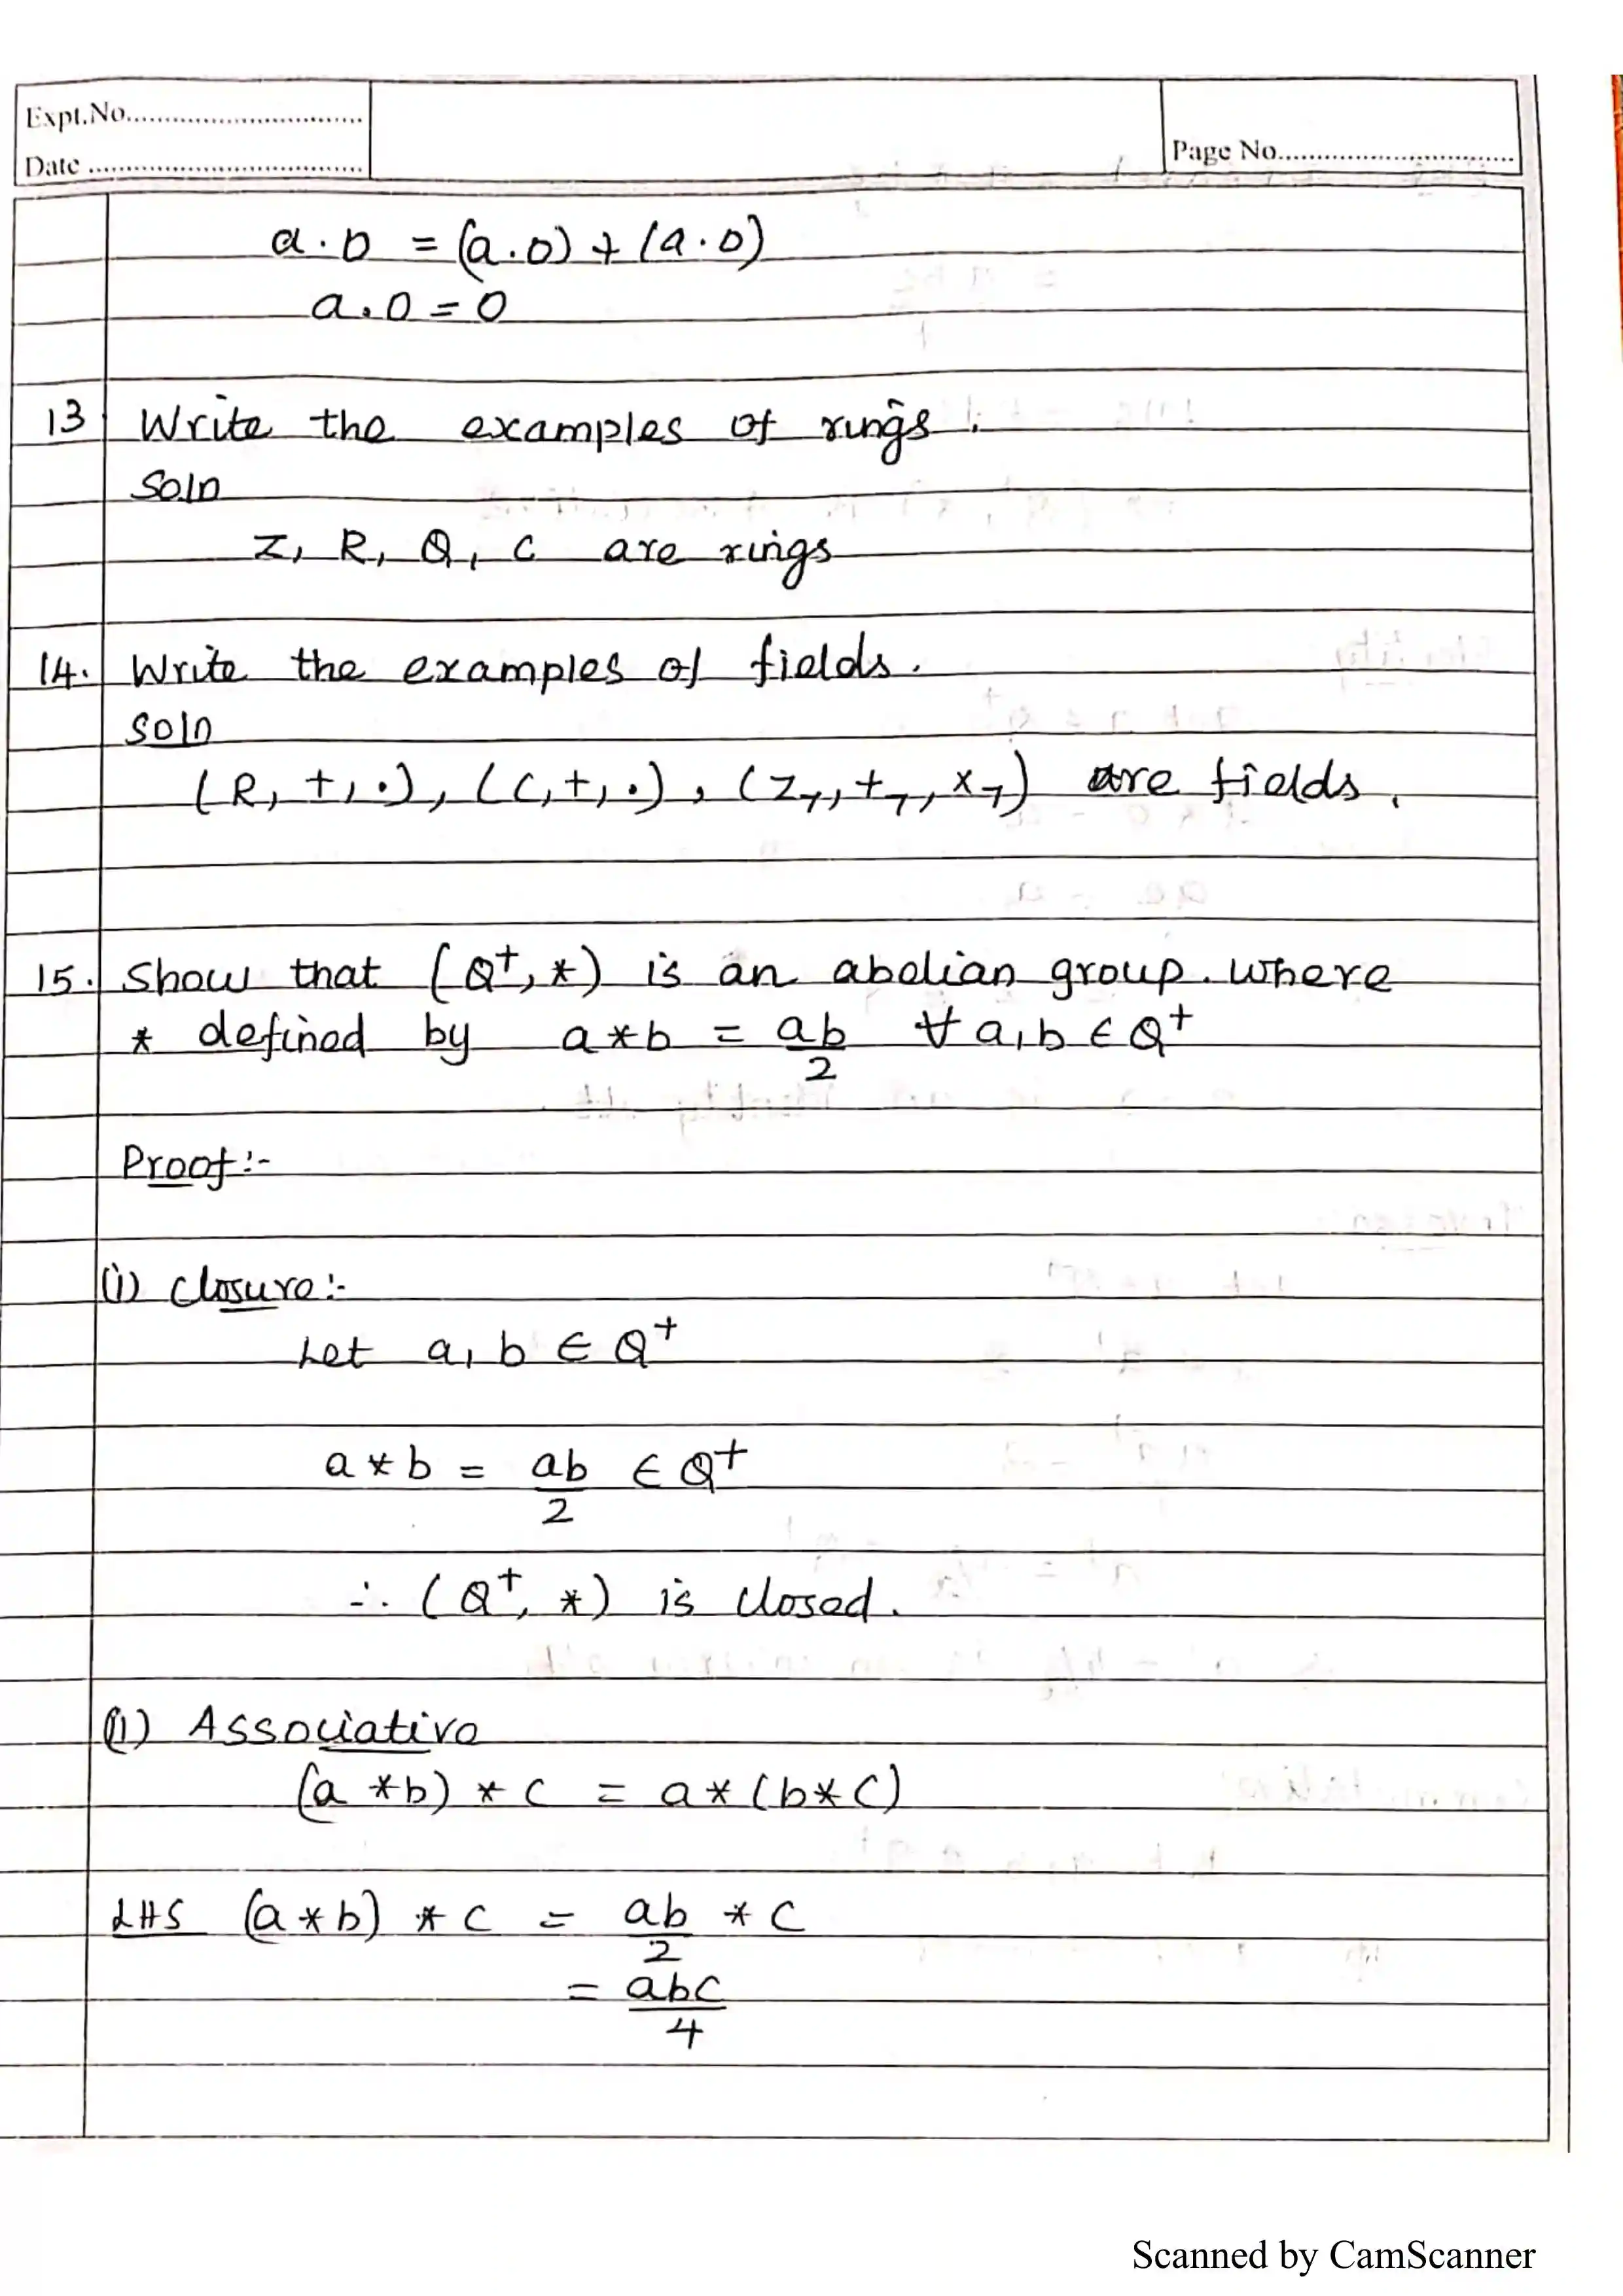 Expt.No..............................
Date ..................................
Page No.............................
a . 0 = (a.0) + (a.0)
a.0 = 0
13 Write the examples of rings.
Soln
Z, R, Q, C are rings
14. Write the examples of fields.
Soln
(R, +, .), (C, +, .), (Z₇, +₇, ×₇) are fields.
15. Show that (Q⁺, *) is an abelian group. where
* defined by a * b = ab/2 ∀ a, b ∈ Q⁺
Proof:-
(i) Closure:-
Let a, b ∈ Q⁺
a * b = ab/2 ∈ Q⁺
∴ (Q⁺, *) is closed.
(ii) Associative
(a * b) * c = a * (b * c)
LHS (a * b) * c = ab/2 * c
= abc/4
Scanned by CamScanner